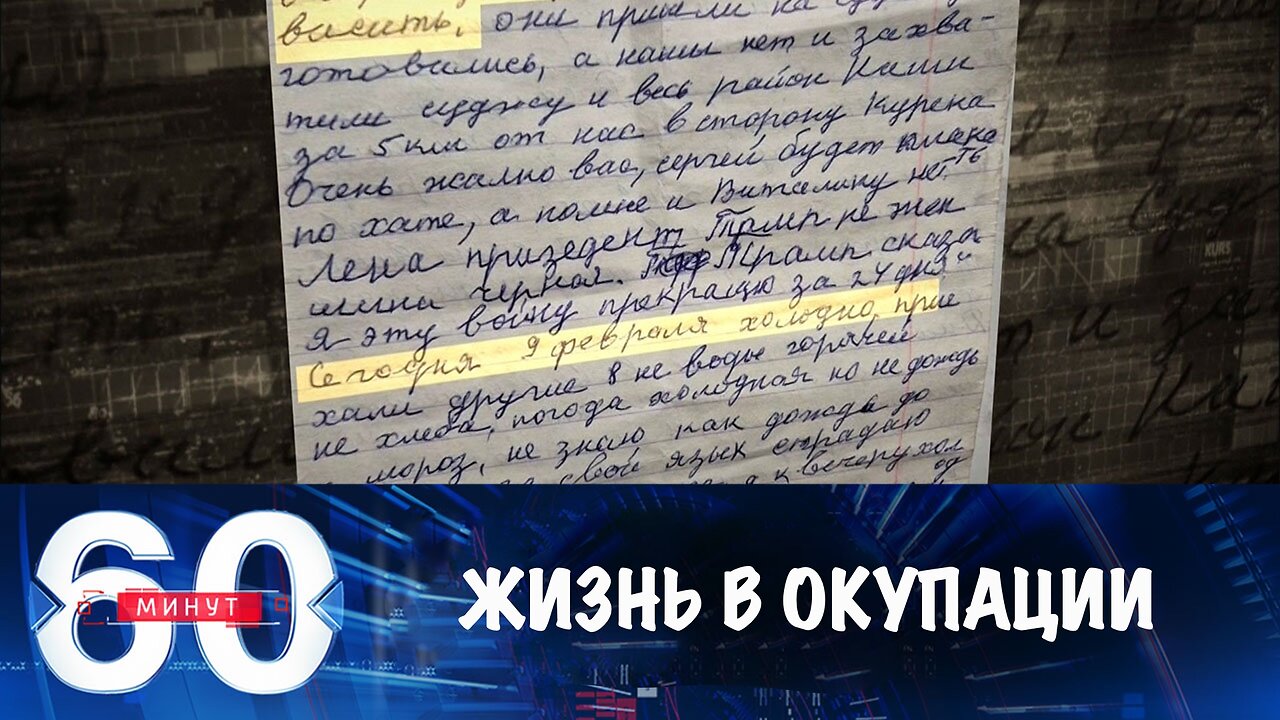 васить, они пришли на
готовились, а наши нет и захва-
тили суджу и весь район Наши
за 5 км от нас в сторону Курска
Очень жалко вас, сергей будет
по хате, а помне и Виталику нет
Лена призедент Трамп не жен
шина черная. Трамп сказал
я эту войну прекращю за 24 дня"
Сегодня 9 февраля холодно, прие
хали другие 8 не воды горячей
не хлеба, погода холодная но не дождь
мороз, не знаю как дожда до
свой язык страдаю
к вечеру хол
од
60
МИНУТ
ЖИЗНЬ В ОКУПАЦИИ
KURS